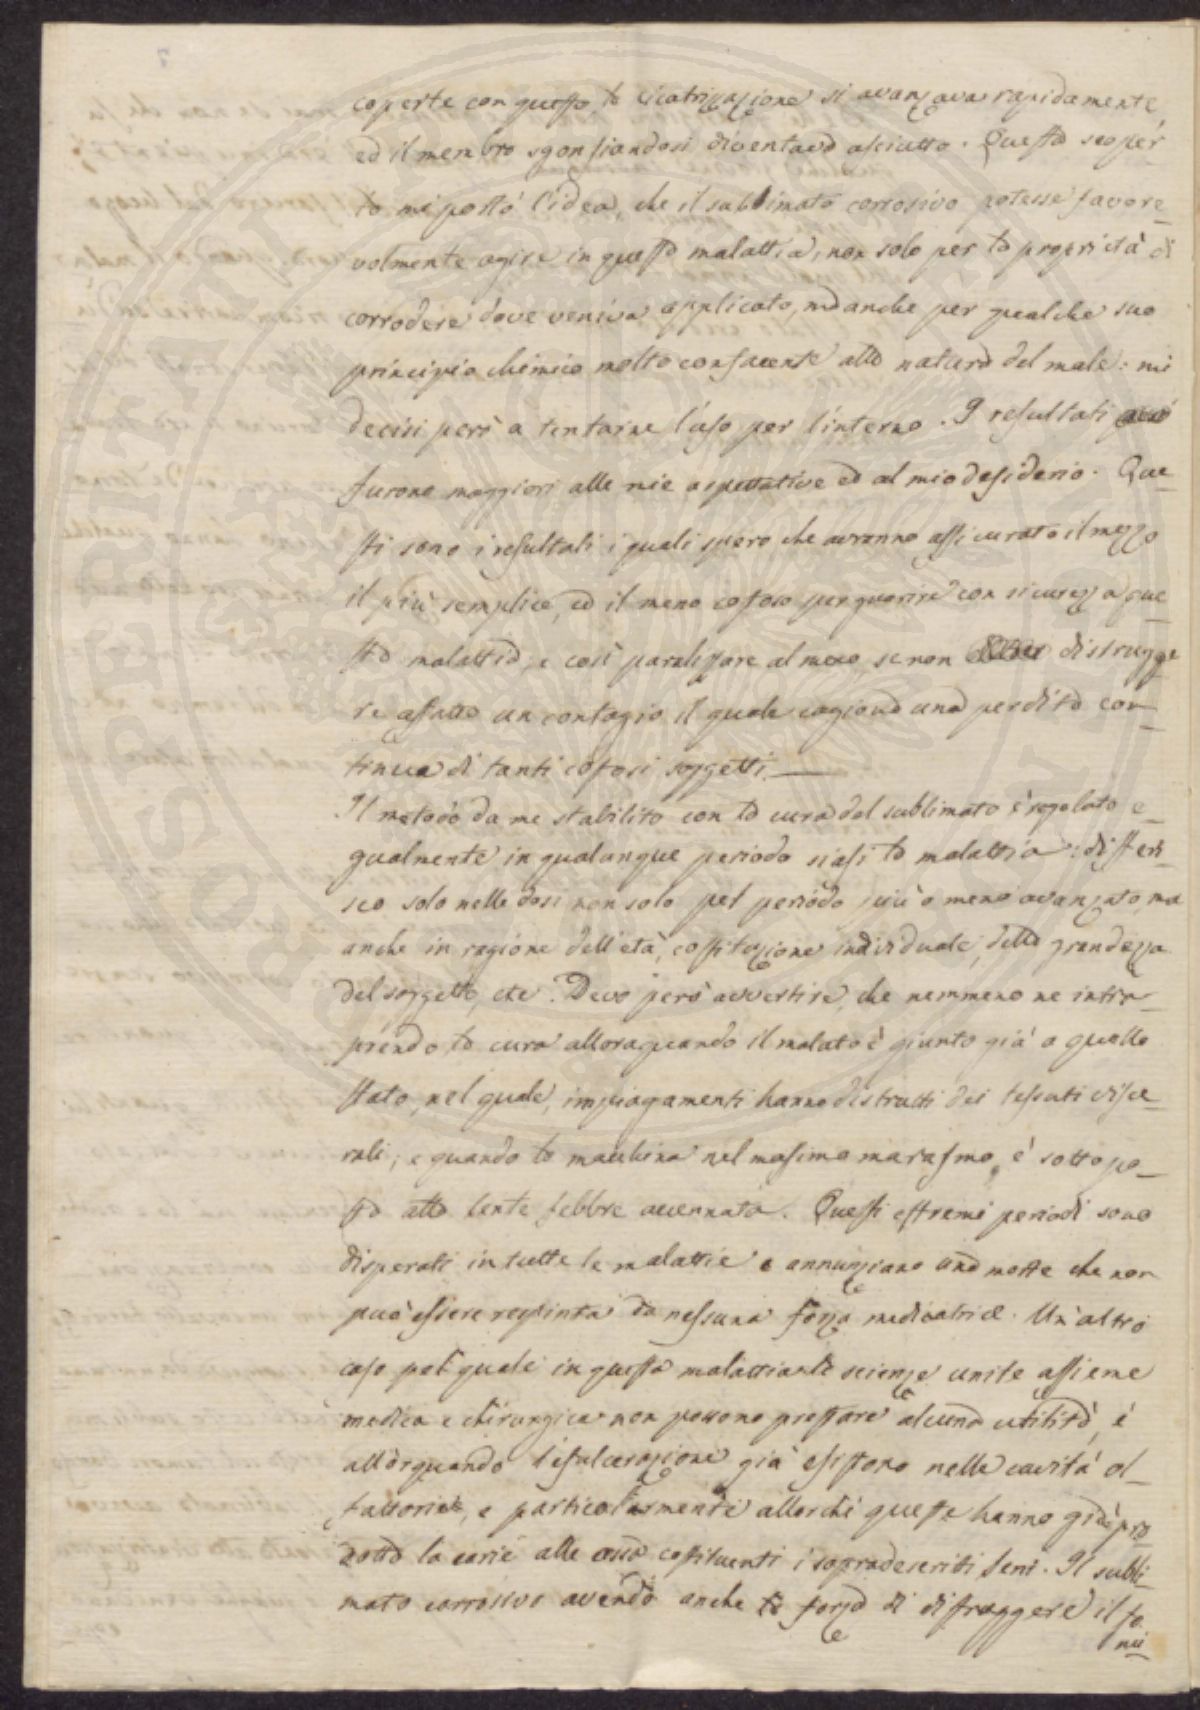 coperte con questo, la cicatrizzazione si avanzava rapidamente,
ed il membro sgonfiandosi diventava asciutto. Questa scoper-
ta mi portò l'idea, che il sublimato corrosivo potesse favore-
volmente agire in questa malattia, non solo per la proprietà di
corrodere dove veniva applicato, ma anche per qualche suo
principio chimico molto confacente alla natura del male: mi
decisi però a tentarne l'uso per l'interno. I resultati
furono maggiori alle mie aspettative ed al mio desiderio. Que-
sti sono i resultati i quali spero che avranno assicurato il mezzo
il più semplice, ed il meno costoso per guarire con sicurezza que-
sta malattia, e così paralizzare almeno, se non distrugge-
re affatto un contagio il quale cagiona una perdita con-
tinua di tanti costosi soggetti.
Il metodo da me stabilito con la cura del sublimato è regolato e-
gualmente in qualunque periodo siasi la malattia: differi-
sco solo nelle dosi non solo pel periodo più o meno avanzato, ma
anche in ragione dell'età, costituzione individuale, della grandezza
del soggetto, etc. Devo però avvertire, che nemmeno ne intra-
prendo la cura alloraquando il malato è giunto già a quello
stato, nel quale, impiagamenti hanno distrutti dei tessuti visce-
rali; e quando la macchina nel massimo marasmo, è sottopo-
sta alla lente febbre accennata. Questi estremi periodi sono
disperati in tutte le malattie e annunziano una morte che non
può essere respinta da nessuna forza medicatrice. Un'altro
caso pel quale in questa malattia le scienze unite assieme
medica e chirurgica non possono prestare alcuna utilità, è
all'orquando l'esulcerazioni già esistono nelle cavità ol-
fattorie, e particolarmente allorchè queste hanno già pro-
dotta la carie alle ossa costituenti i sopradescritti seni. Il subli-
mato corrosivo avendo anche la forza di distruggere il te-
nui-